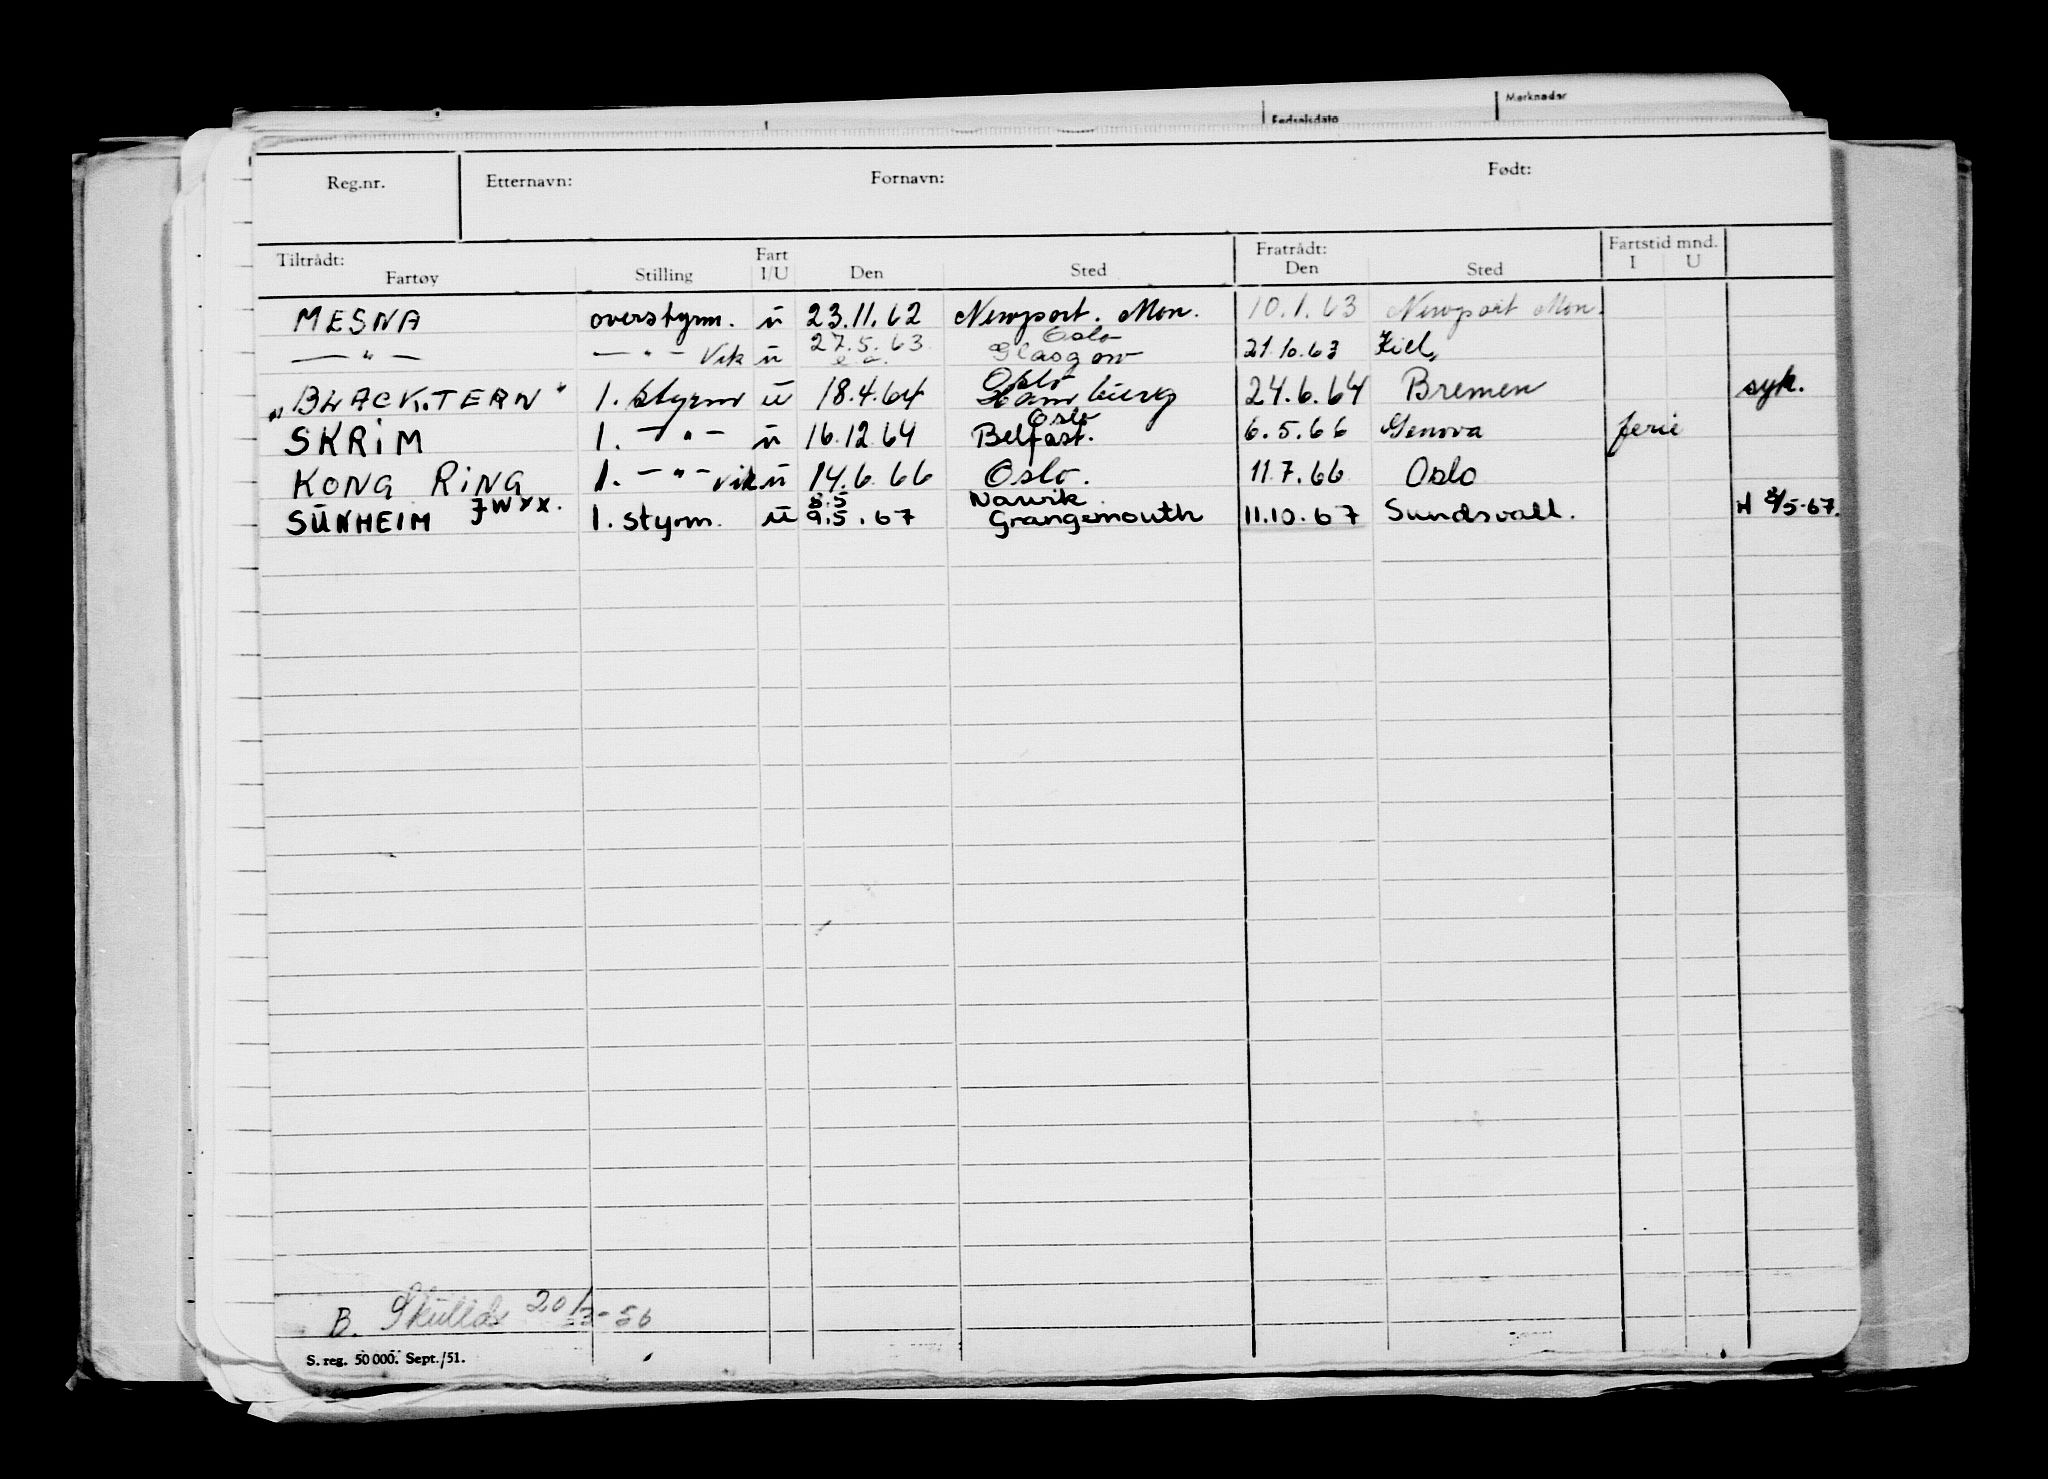 Merknader
Fødselsdato
Reg.nr. Etternavn: Fornavn: Født:
Tiltrådt: Fart Fratrådt: Fartstid mnd.
Fartøy Stilling I/U Den Sted Den Sted I U
MESNA overstyrm. u 23.11.62 Newport. Mon. 10.1.63 Newport Mon.
Oslo
— " — — " — Vik u 27.5.63 Glasgow 21.10.63 Kiel,
Oslo
"BLACK.TERN" 1. styrm u 18.4.64 Hamburg 24.6.64 Bremen syk.
Oslo
SKRIM 1. — " — u 16.12.64 Belfast. 6.5.66 Genova ferie
KONG RING 1. — " — vik u 14.6.66 Oslo. 11.7.66 Oslo
JWYX. 8.5 Narvik
SUNHEIM 1. styrm. u 9.5.67 Grangemouth 11.10.67 Sundsvall. H 8/5-67.
B. 20/3-56
S. reg. 50 000. Sept./51.